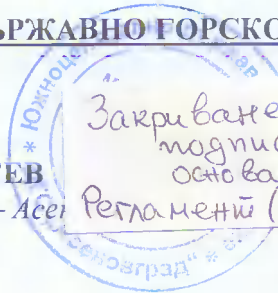 ЪРЖАВНО ГОРСКО
Южноц
Закриване
подпис
основа
Регламент (
ЕВ
– Асен
сеновград" *